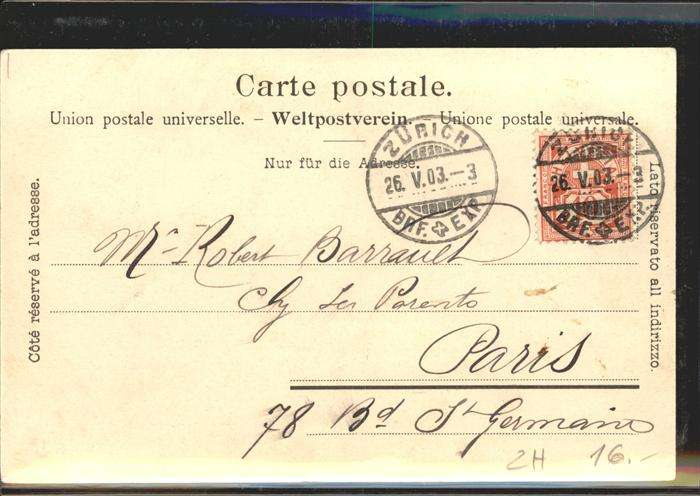 Carte postale.
Union postale universelle. – Weltpostverein. – Unione postale universale.
Nur für die Adresse.
Côté réservé à l'adresse.
Lato riservato all indirizzo.
ZÜRICH
26. V. 03. – 3
BRF. EXP.
ZÜRICH
26. V. 03. – 3
BRF. EXP.
Mr Robert Barrault
Chy Ses Parents
Paris
78 Bd St Germain
2H 16.-